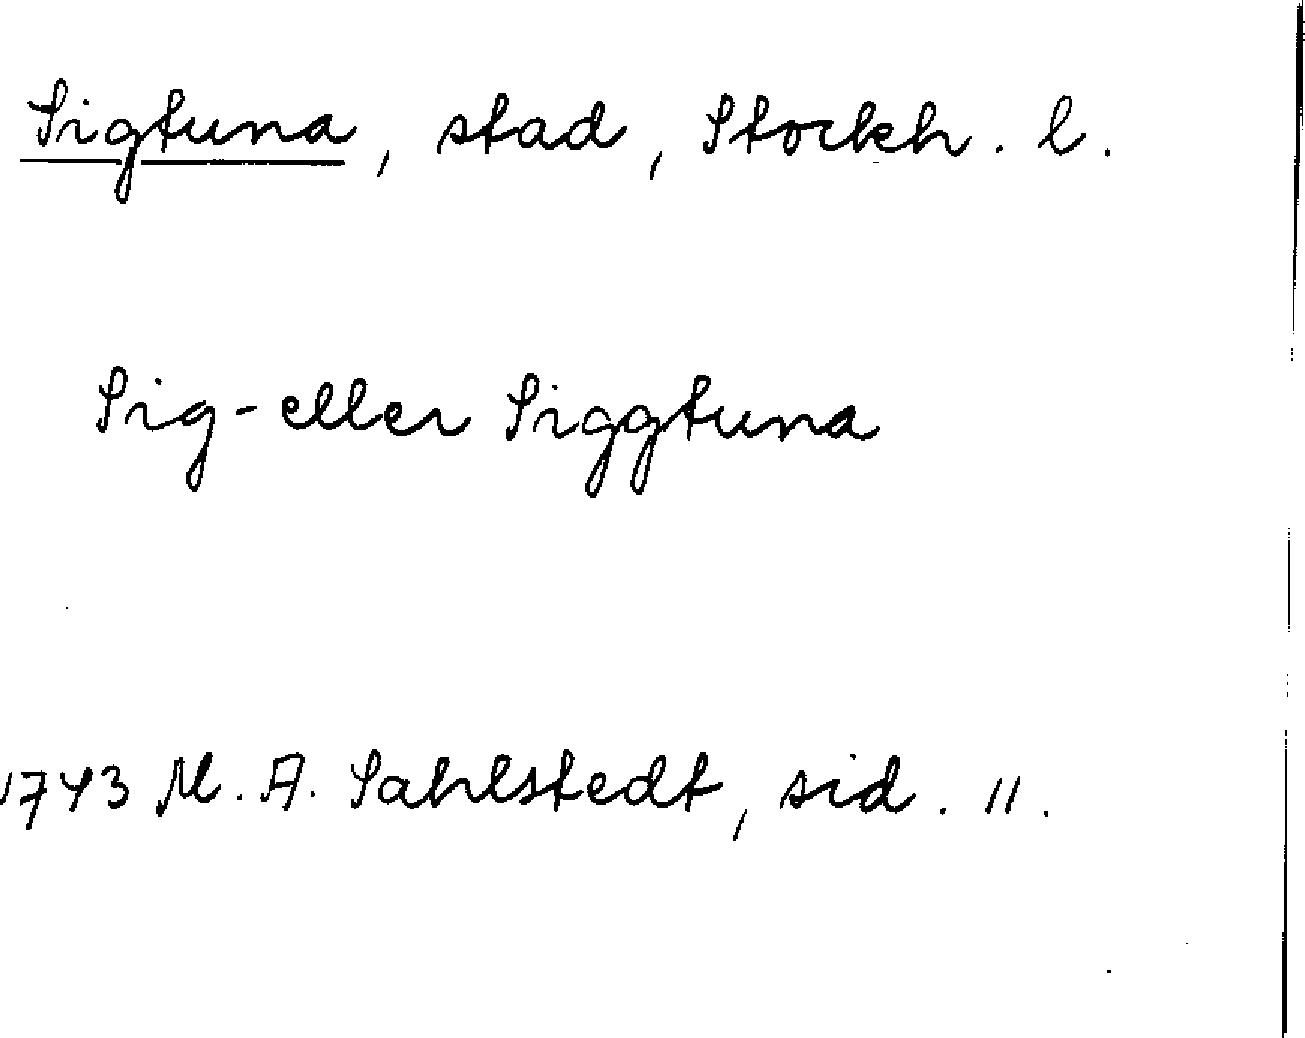 Sigtuna, stad, Stockh. l.
Sig- eller Siggtuna
1743 M. A. Sahlstedt, sid. 11.